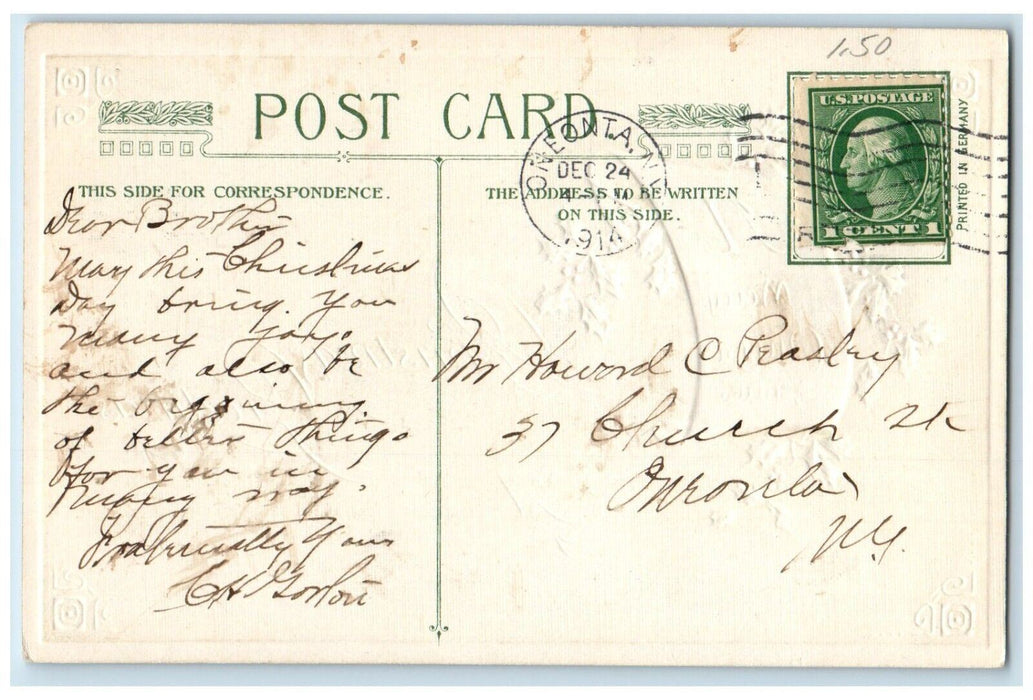 1.50
POST CARD
U.S. POSTAGE
1 CENT 1
PRINTED IN GERMANY
ONEONTA, N.Y.
DEC 24
1914
THIS SIDE FOR CORRESPONDENCE.
THE ADDRESS TO BE WRITTEN
ON THIS SIDE.
Dear Brother
May this Christmas
Day bring you
many joys.
and also be
the begining
of better things
for you in
many ways.
Fraternally Yours
CH
Mr Howard C Peasley
37 Church St
Oneonta
N.Y.